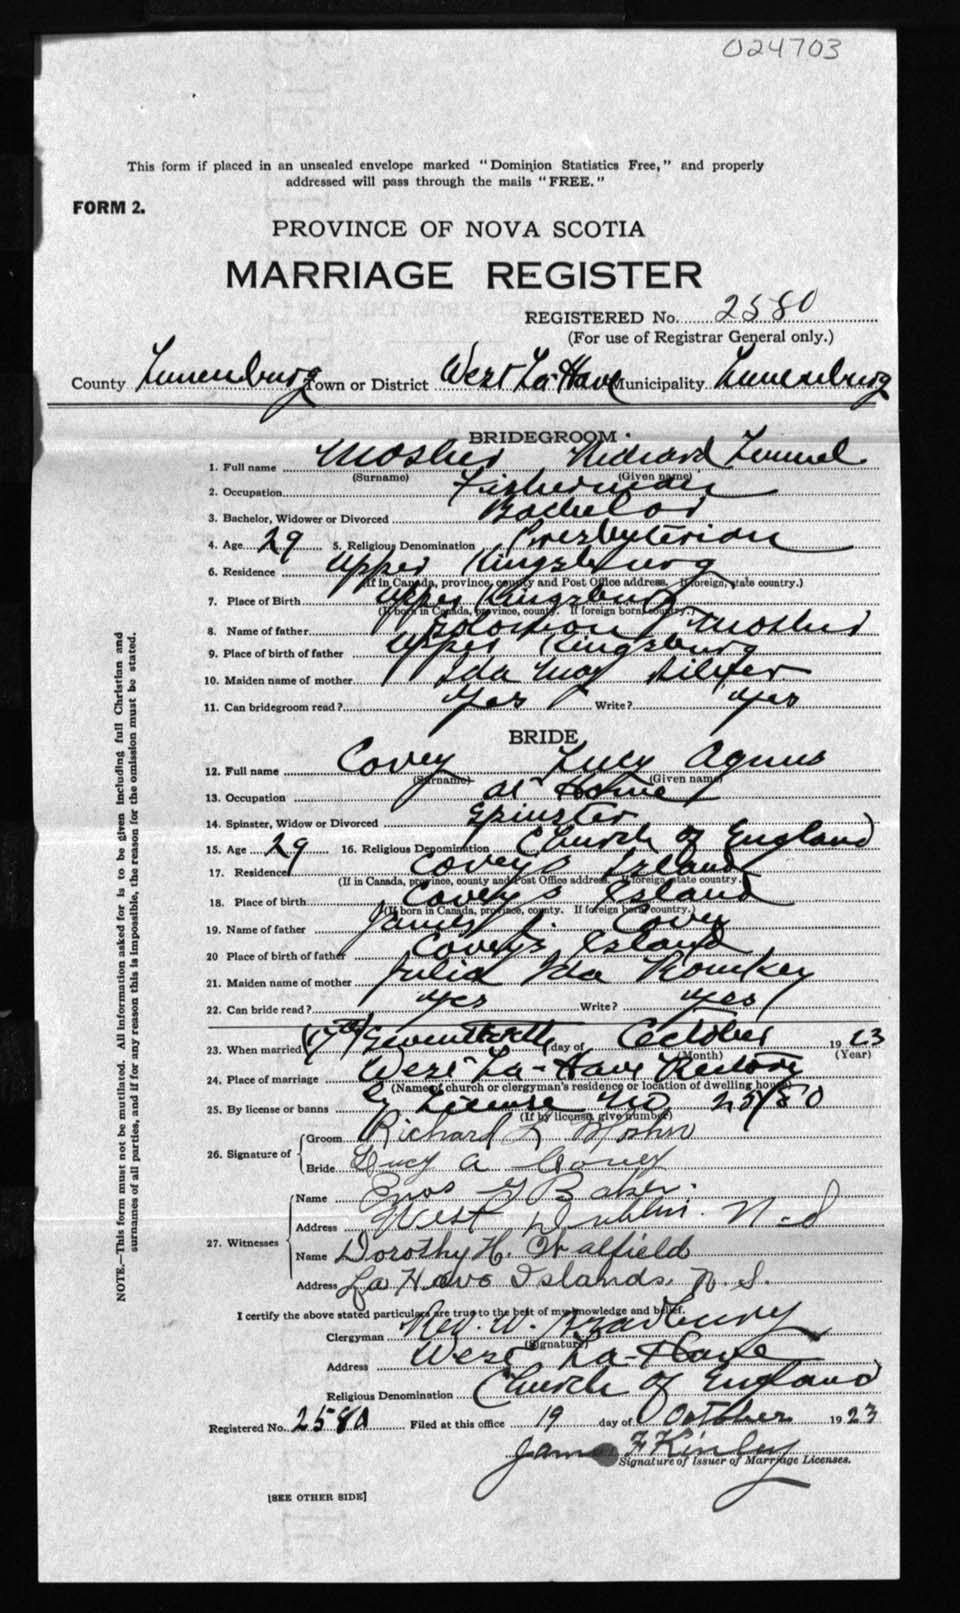 024703
This form if placed in an unsealed envelope marked "Dominion Statistics Free," and properly
addressed will pass through the mails "FREE."
FORM 2.
PROVINCE OF NOVA SCOTIA
MARRIAGE REGISTER
REGISTERED No. 2580
(For use of Registrar General only.)
County Lunenburg Town or District West La-Have Municipality Lunenburg
BRIDEGROOM
1. Full name Mosher Richard Lemuel
(Surname) (Given name)
2. Occupation Fisherman
3. Bachelor, Widower or Divorced Bachelor
4. Age 29 5. Religious Denomination Presbyterian
6. Residence Upper Kingsburg
(If in Canada, province, county and Post Office address. If foreign, state country.)
7. Place of Birth Upper Kingsburg
(If born in Canada, province, county. If foreign born country.)
8. Name of father Solomon Mosher
9. Place of birth of father Upper Kingsburg
10. Maiden name of mother Ida May
11. Can bridegroom read? Yes Write? Yes
BRIDE
12. Full name Covey Lucy Agnus
(Surname) (Given name)
13. Occupation At Home
14. Spinster, Widow or Divorced Spinster
15. Age 29 16. Religious Denomination Church of England
17. Residence Covey's Island
(If in Canada, province, county and Post Office address. If foreign state country.)
18. Place of birth Covey's Island
(If born in Canada, province, county. If foreign born country.)
19. Name of father James J. Covey
20 Place of birth of father Covey's Island
21. Maiden name of mother Julia Ida Romkey
22. Can bride read? Yes Write? Yes
23. When married (17th) Seventeenth day of October 1923
(Month) (Year)
24. Place of marriage West La-Have Rectory
(Name of church or clergyman's residence or location of dwelling house)
25. By license or banns by License No 2580
(If by license, give number)
26. Signature of Groom Richard L Mosher
Bride Lucy A Covey
27. Witnesses Name Baker.
Address West Dublin. N-S
Name Dorothy H. Walfield
Address La Have Islands, N. S.
I certify the above stated particulars are true to the best of my knowledge and belief.
Clergyman Rev. W. Bradbury
(Signature)
Address West La-Have
Religious Denomination Church of England
Registered No. 2580 Filed at this office 19 day of October 1923
James F Kinley
Signature of Issuer of Marriage Licenses.
[SEE OTHER SIDE]
NOTE.—This form must not be mutilated. All information asked for is to be given including full Christian and
surnames of all parties, and if for any reason this is impossible, the reason for the omission must be stated.